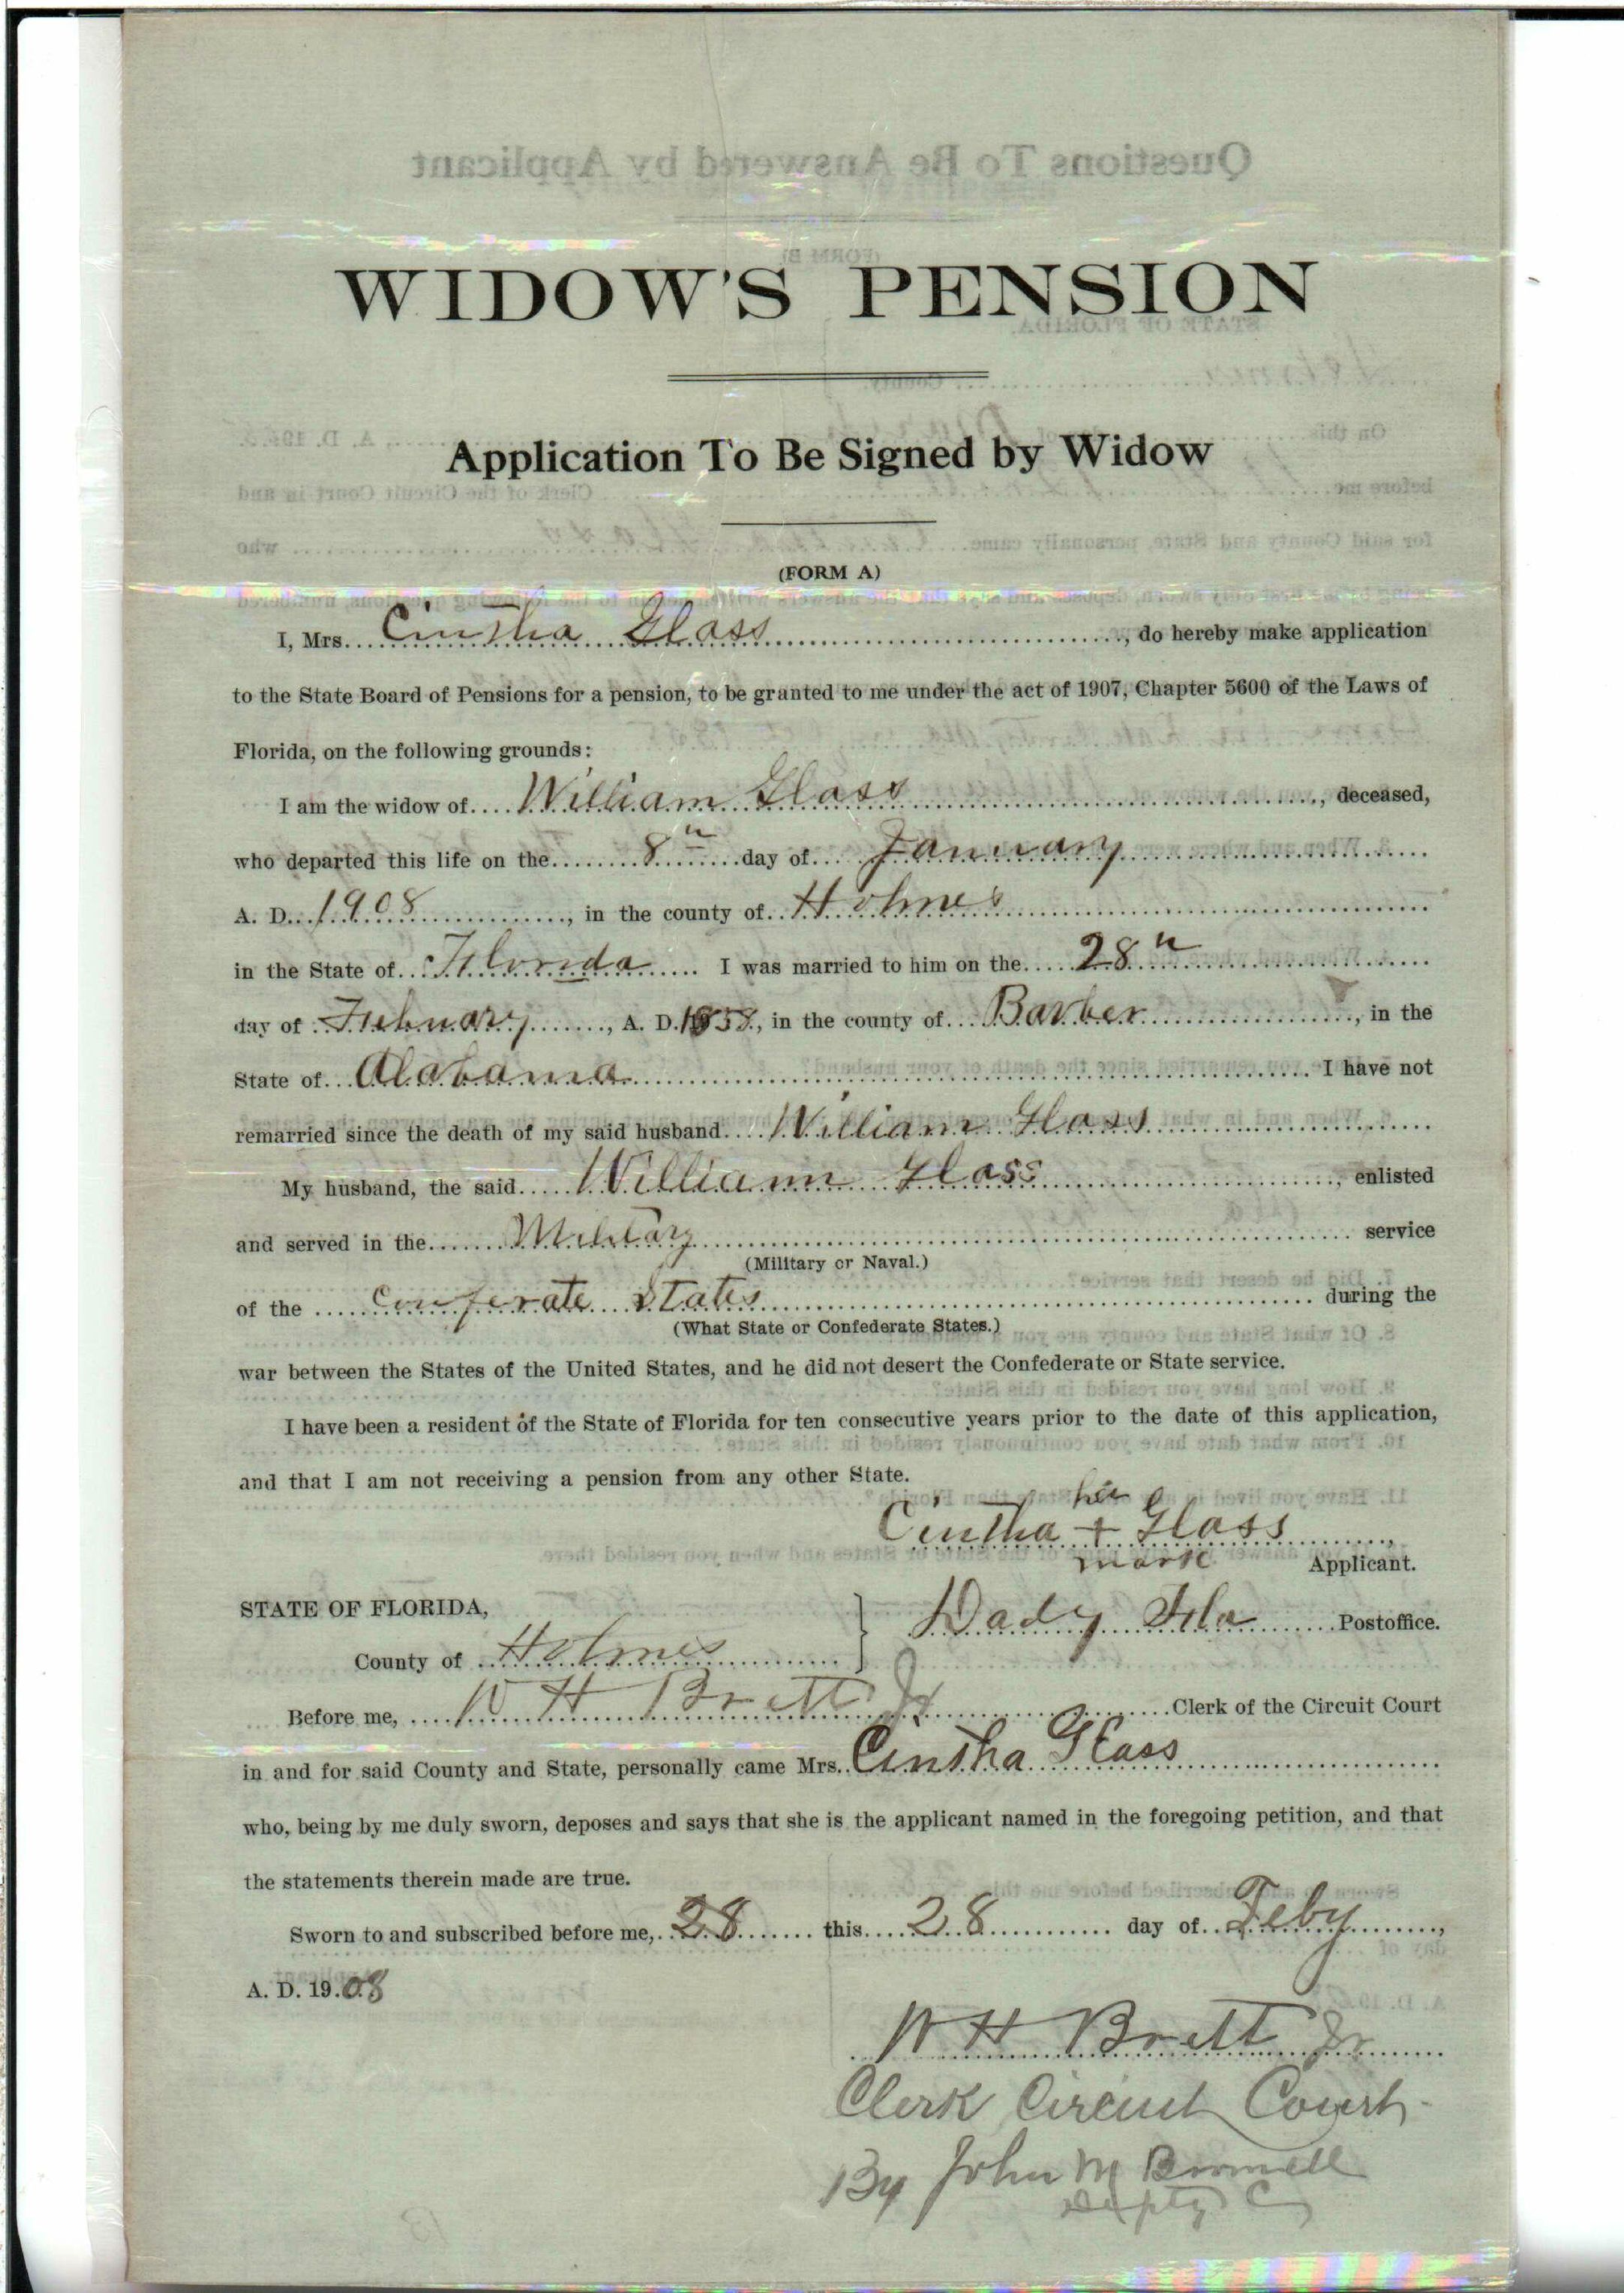 WIDOW'S PENSION
Application To Be Signed by Widow
(FORM A)
I, Mrs. Cintha Glass, do hereby make application
to the State Board of Pensions for a pension, to be granted to me under the act of 1907, Chapter 5600 of the Laws of
Florida, on the following grounds:
I am the widow of William Glass, deceased,
who departed this life on the 8" day of January
A. D. 1908, in the county of Holmes
in the State of Florida I was married to him on the 28"
day of Febuary, A. D. 1858, in the county of Barber, in the
State of Alabama I have not
remarried since the death of my said husband William Glass
My husband, the said William Glass, enlisted
and served in the Military service
(Military or Naval.)
of the Conferate States during the
(What State or Confederate States.)
war between the States of the United States, and he did not desert the Confederate or State service.
I have been a resident of the State of Florida for ten consecutive years prior to the date of this application,
and that I am not receiving a pension from any other State.
her
Cintha + Glass
mark Applicant.
STATE OF FLORIDA,
Dady Fla Postoffice.
County of Holmes
Before me, W H Brett Jr Clerk of the Circuit Court
in and for said County and State, personally came Mrs. Cintha Glass
who, being by me duly sworn, deposes and says that she is the applicant named in the foregoing petition, and that
the statements therein made are true.
Sworn to and subscribed before me, 28 this 28 day of Feby,
A. D. 1908
W H Brett Jr
Clerk Circuit Court
By John M